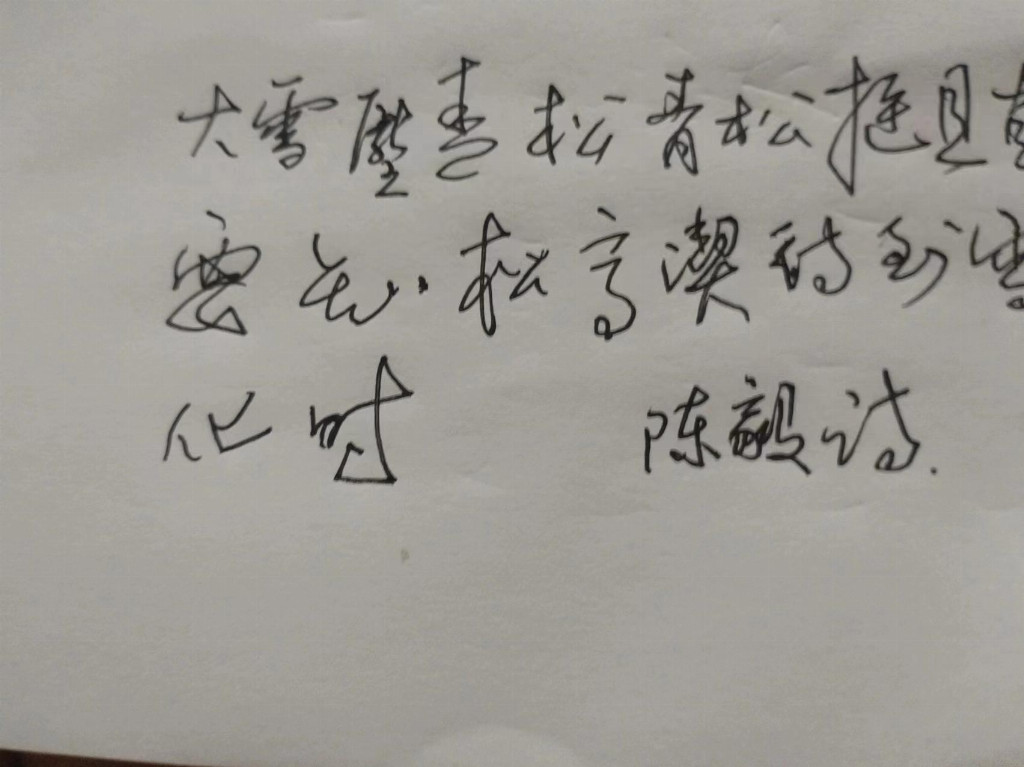 大雪壓青松青松挺且直
要知松高潔待到雪
化时 陈毅诗.